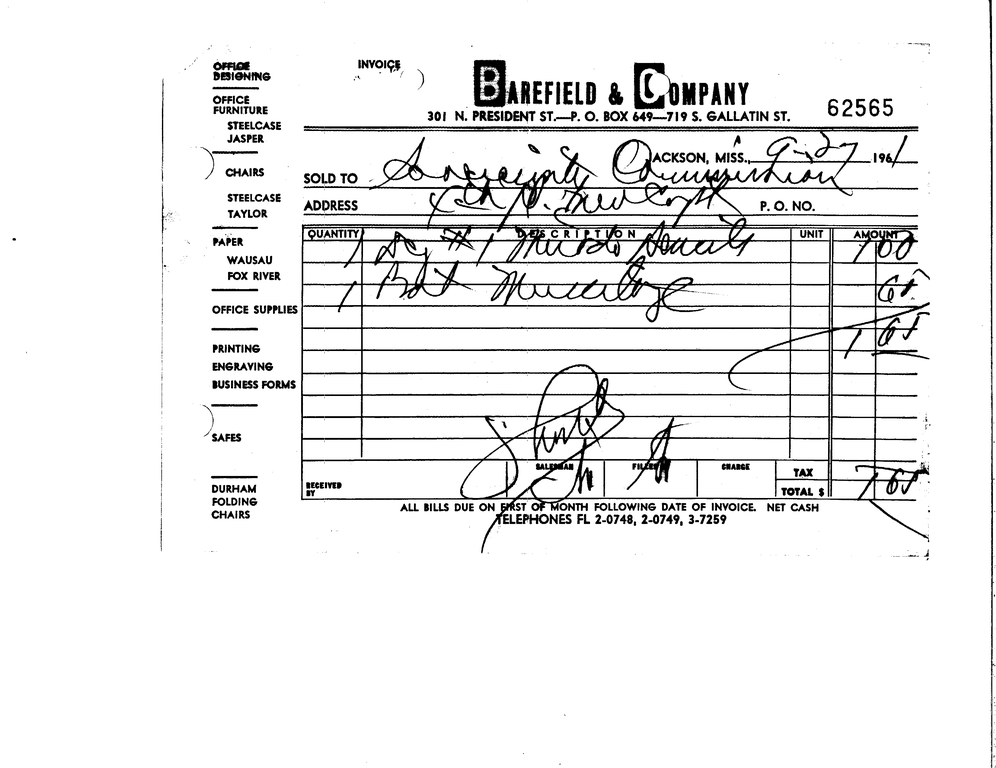 OFFICE DESIGNING
OFFICE FURNITURE
STEELCASE
JASPER
CHAIRS
STEELCASE
TAYLOR
PAPER
WAUSAU
FOX RIVER
OFFICE SUPPLIES
PRINTING
ENGRAVING
BUSINESS FORMS
SAFES
DURHAM
FOLDING
CHAIRS
INVOICE
BAREFIELD & COMPANY
301 N. PRESIDENT ST.—P. O. BOX 649—719 S. GALLATIN ST.
62565
JACKSON, MISS., 9-27 1961
SOLD TO Sovereignty Commission
ADDRESS New Capitol P. O. NO.
QUANTITY DESCRIPTION UNIT AMOUNT
1 Dz #1 1 00
1 Bot Mucilage 65
1 65
RECEIVED BY SALESMAN FILLED CHARGE TAX
TOTAL $ 1 65
ALL BILLS DUE ON FIRST OF MONTH FOLLOWING DATE OF INVOICE. NET CASH
TELEPHONES FL 2-0748, 2-0749, 3-7259